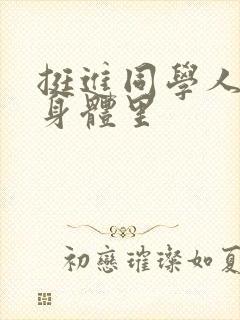 挺進同學人
身體里
初戀璀璨如夏